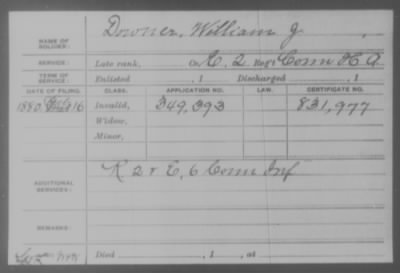 NAME OF SOLDIER: Downer, William J.
SERVICE: Late rank, Co. E, 2 Reg't Conn H A
TERM OF SERVICE: Enlisted , 1 Discharged , 1
DATE OF FILING. CLASS. APPLICATION NO. LAW. CERTIFICATE NO.
1880 16 Invalid, 349,393 831,977
Widow,
Minor,
ADDITIONAL SERVICES: K 2 & E, 6 Conn Inf
REMARKS:
Died , 1 , at